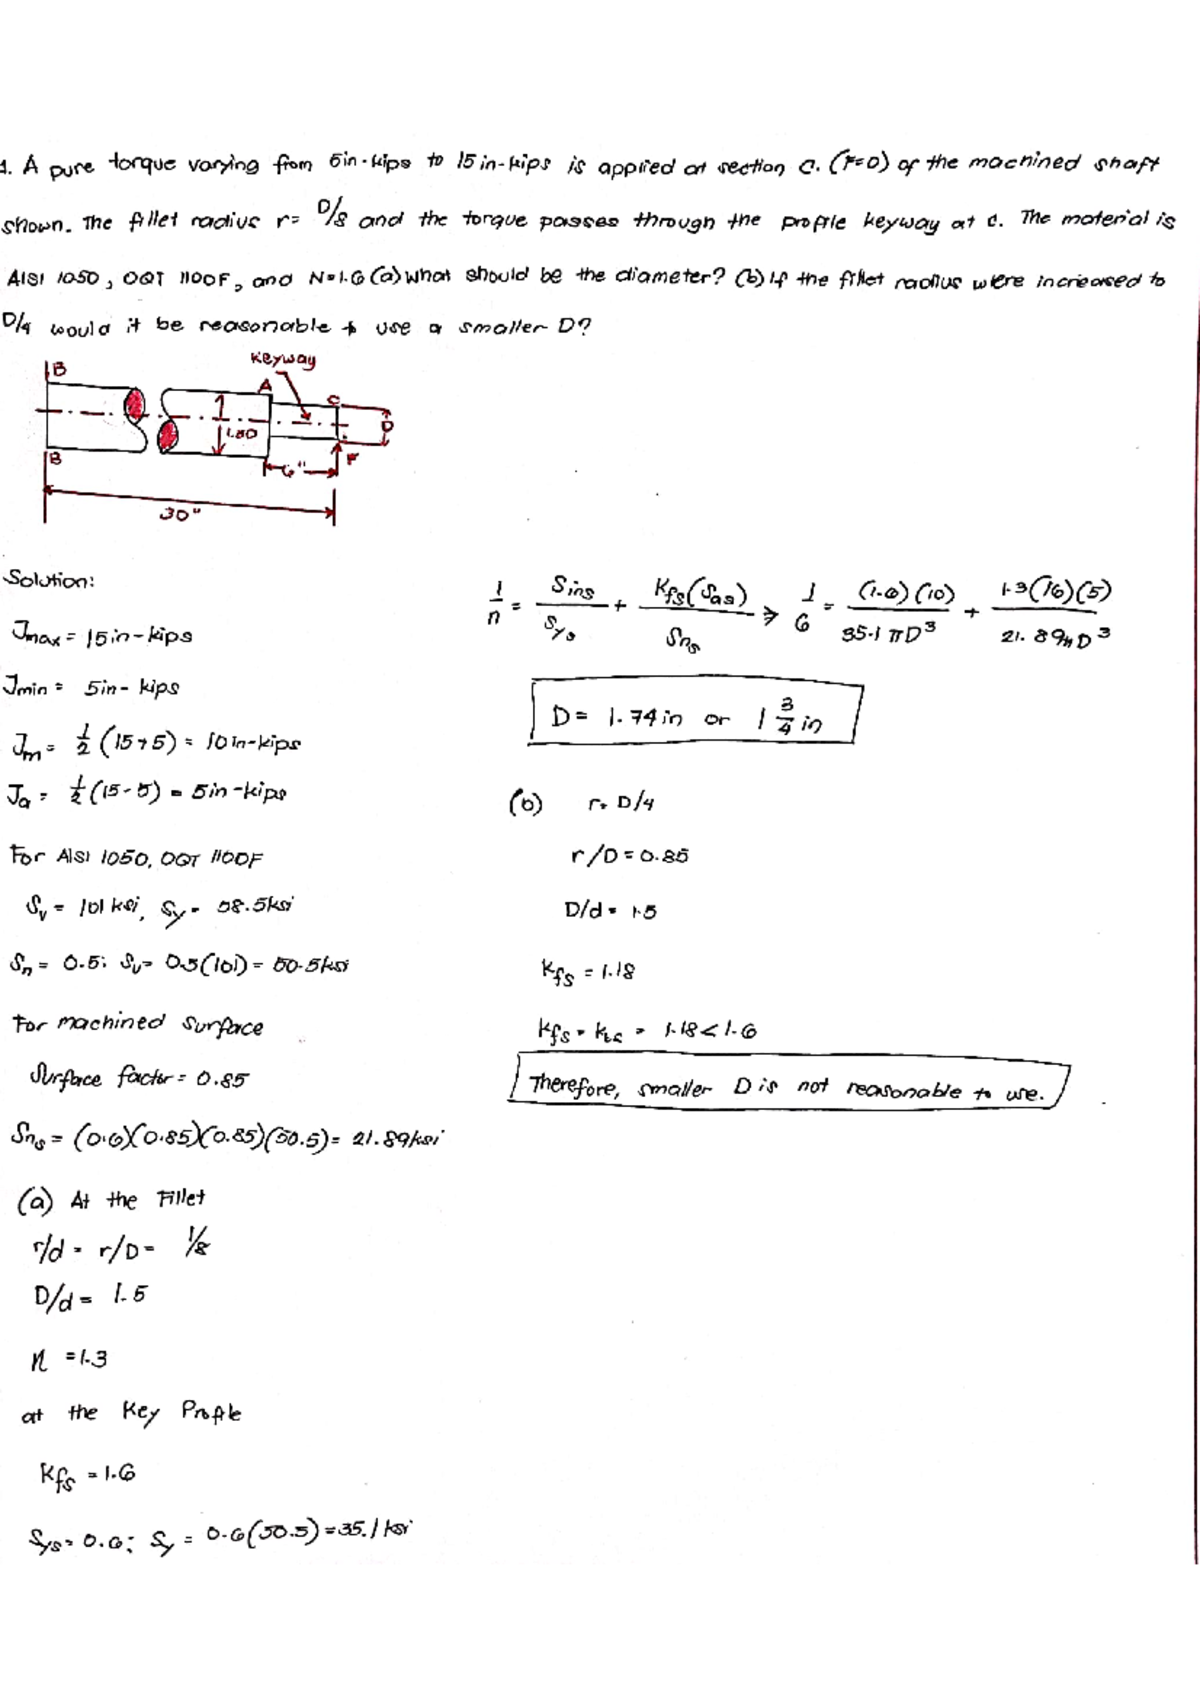 1. A pure torque varying from 5in-kips to 15in-kips is applied at section C. (F=0) of the machined shaft
shown. The fillet radius r= D/8 and the torque passes through the profile keyway at C. The material is
AISI 1050, OQT 1100F, and N=1.6 (a) what should be the diameter? (b) If the fillet radius were increased to
D/4 would it be reasonable to use a smaller D?
keyway
B
A
C
1.5D
D
B
6"
F
30"
Solution:
Jmax = 15in-kips
Jmin = 5in- kips
Jm = 1/2 (15+5) = 10in-kips
Ja = 1/2 (15-5) = 5in-kips
For AISI 1050, OQT 1100F
Su = 101 ksi, Sy = 58.5ksi
Sn = 0.5; Su = 0.5(101) = 50.5ksi
For machined surface
Surface factor = 0.85
Sns = (0.6)(0.85)(0.85)(50.5) = 21.89ksi
(a) At the Fillet
r/d = r/D = 1/8
D/d = 1.5
n = 1.3
at the Key Profile
Kfs = 1.6
Sys = 0.6; Sy = 0.6(50.5) = 35.1 ksi
1/n = Sms/Sys + Kfs(Sas)/Sns ⇒ 1/6 = (1.6)(10)/35.1πD³ + 1.3(16)(5)/21.89πD³
D = 1.74in or 1 3/4 in
(b) r = D/4
r/D = 0.25
D/d = 1.5
Kfs = 1.18
Kfs = kts = 1.18 < 1.6
Therefore, smaller D is not reasonable to use.